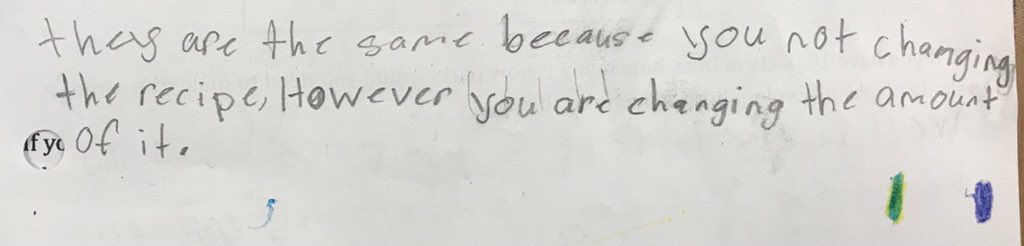 they are the same because you not changing
the recipe, However you are changing the amount
if yo of it.